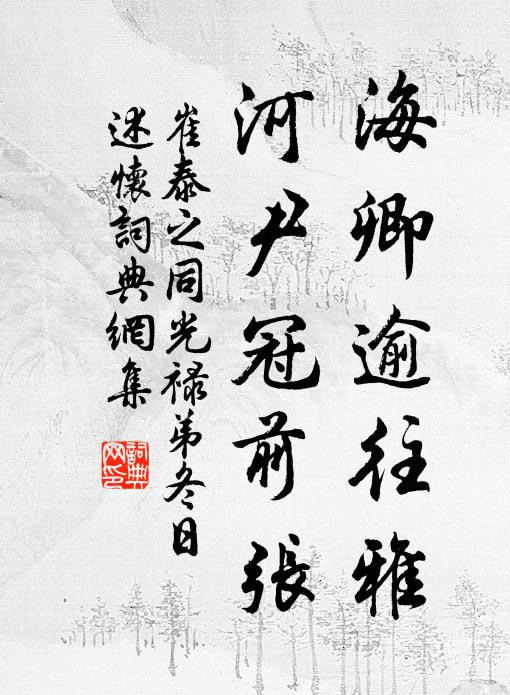 海卿逾往雅
河尹冠前張
崔泰之同光祿弟冬日
述懷詞典網集
詞典網印